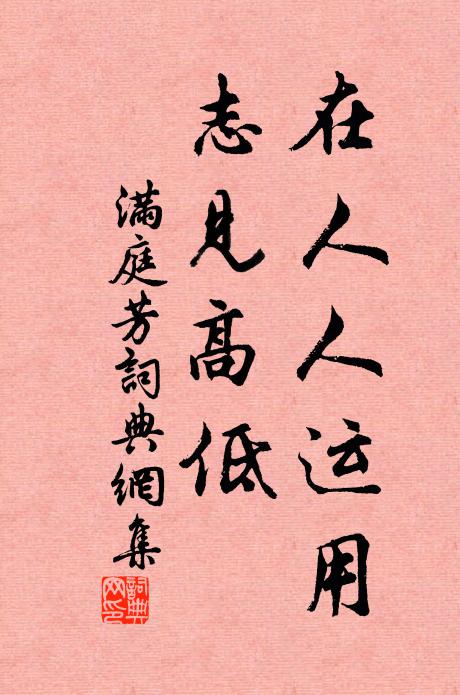 在人人运用
志見高低
满庭芳詞典網集
詞典
网印